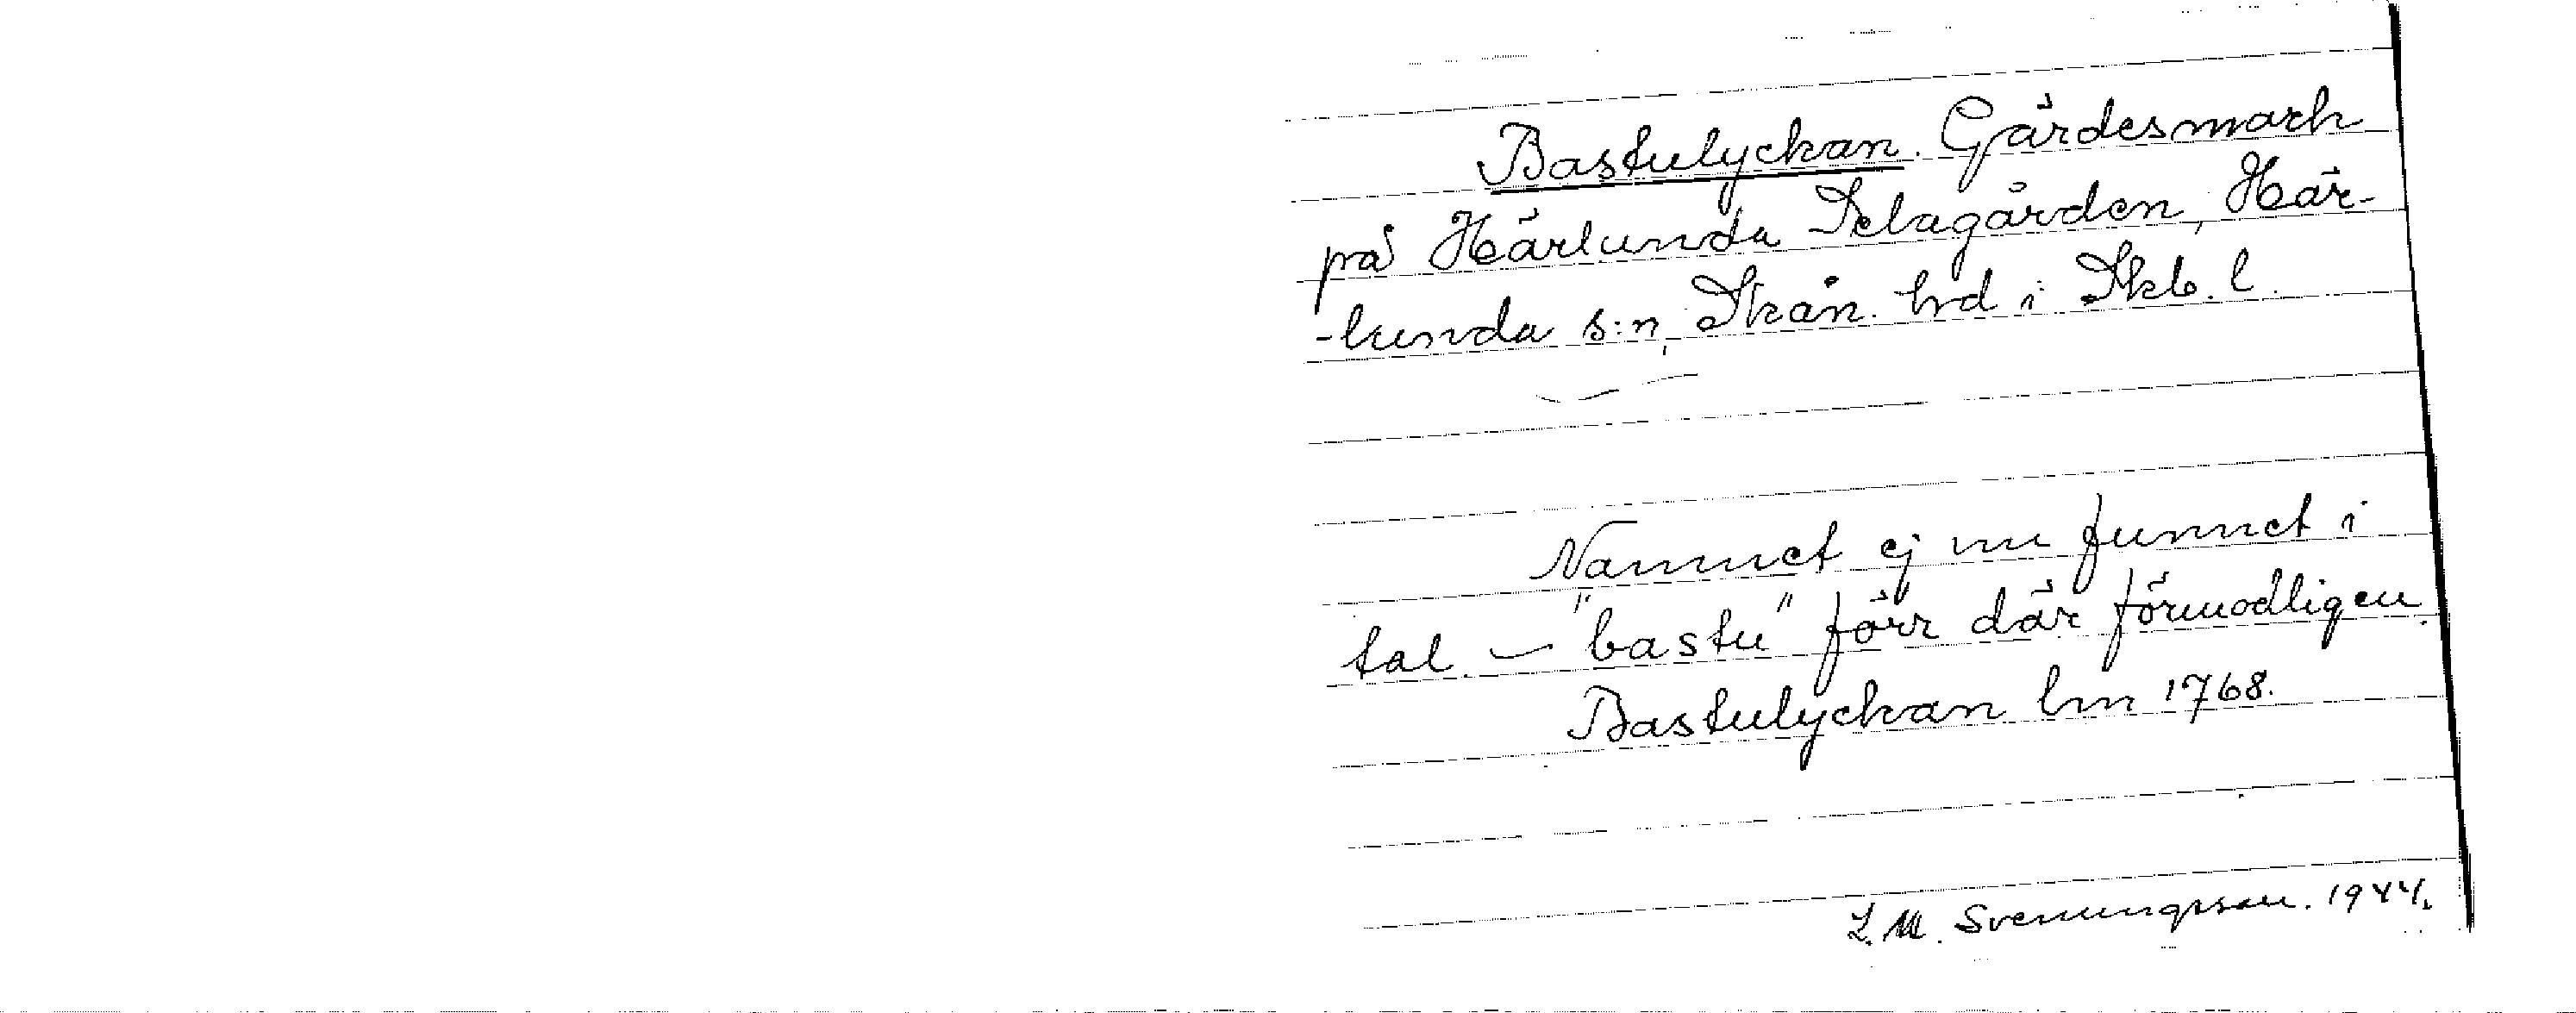 Bastulyckan. Gärdesmark
på Härlunda Stlagården, Här-
-lunda s:n, Skån. hrd i Skb. l.
Namnet ej nu funnet i
tal. – "bastu" förr där förmodligen.
Bastulyckan lm 1768.
L. M. Svenungsson. 1944.